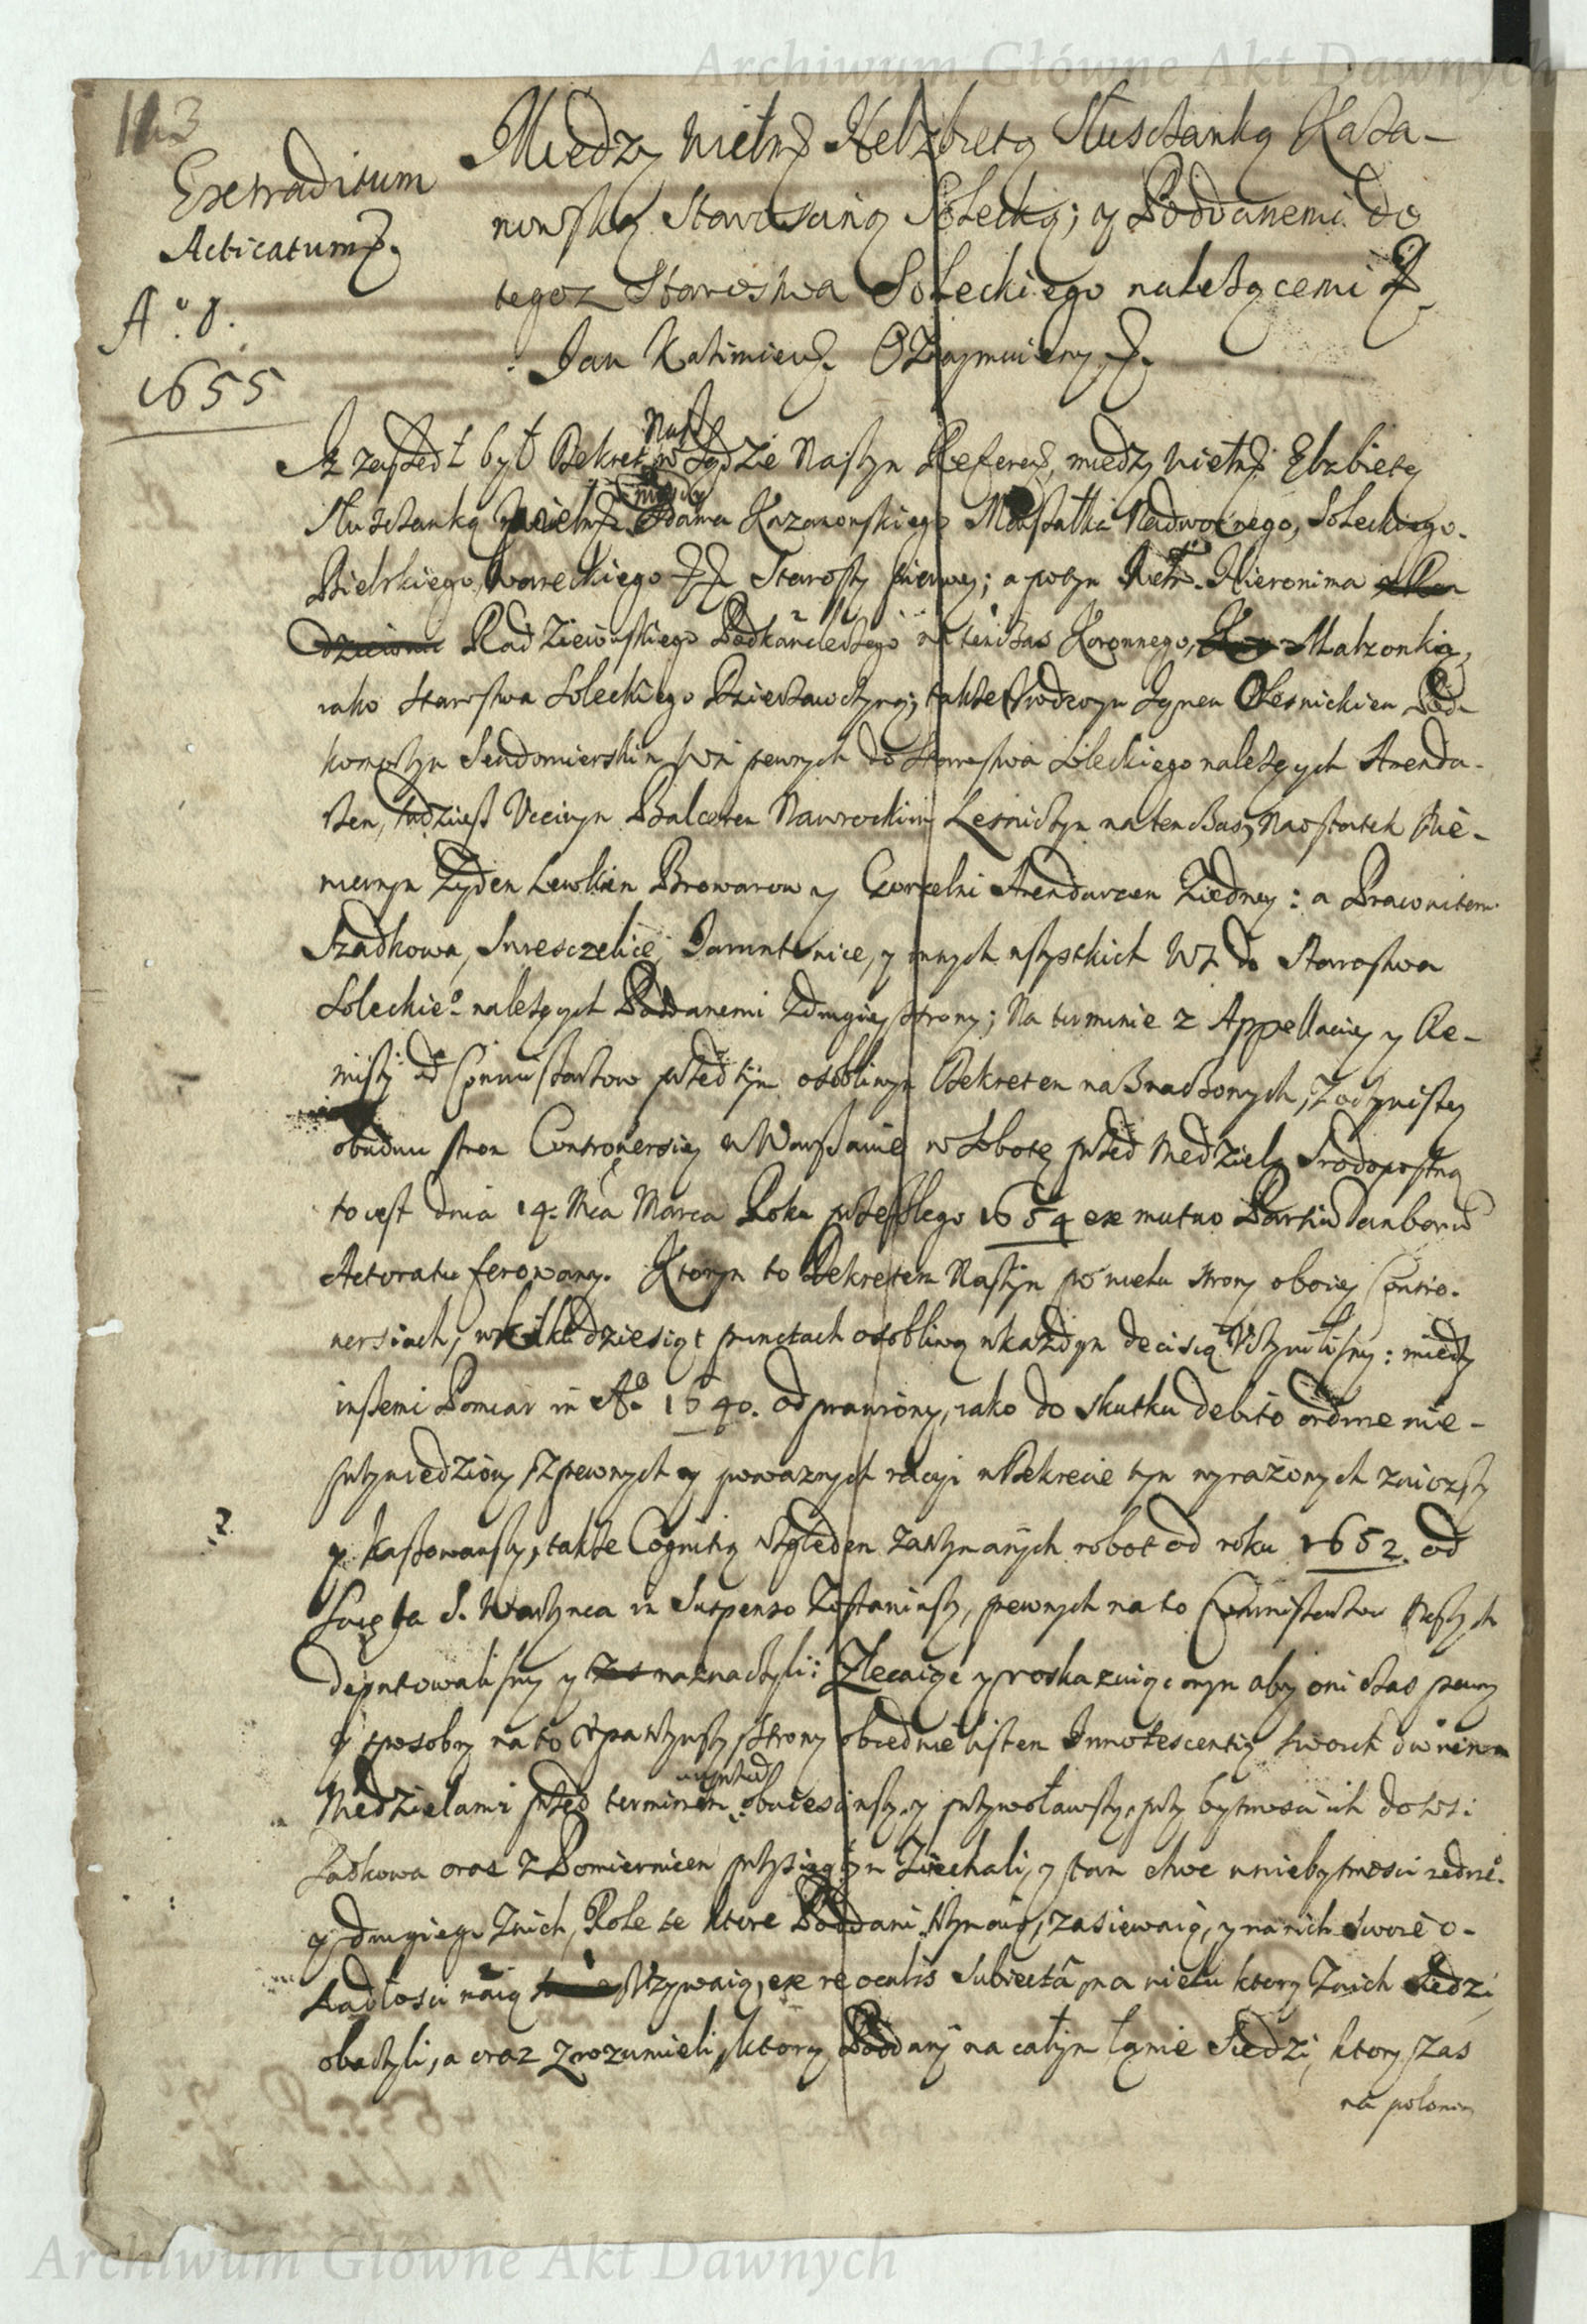 Archiwum Główne Akt Dawnych
113
Extraditum
Acticatum
A° D.
1655
Miedzy Wielm Helzbietą Słusczanką Kaza-
nowską Starosciną Solecką; y Poddanemi do
tegoz Starostwa Soleckiego należącemi
Jan Kazimierz. Oznaymuiemy
Iz zaszedł był Dekret Nasz w Sądzie Naszym Referen, miedzy Wielm Elzbietą
Słuszczanką niegdy Adama Kazanowskiego Marszałka Nadwornego, Soleckiego.
Bielskiego Wareckiego Starosty pierwey; a potym Wielm. Hieronima
Radzieiowskiego Podkanclerzego na tenczas Koronnego, Małzonką,
iako Starostwa Soleckiego Dzierzawczyną; także Urodzonym Oleśnickiem Pod-
komorzym Sendomierskim wsi pewnych do Starostwa Soleckiego należących Arenda-
rzem, tudziesz Uccziwym Balcerem Nawrockim Lesniczym natenczas, Naostatek Nie-
wiernym Zydem Lewkiem Browarow y Gorzelni Arendarzem Ziedney: a Pracowitemi
Szadkowa, Jarentowice, y innych wszystkich Wsi do Starostwa
Soleckie° należących Poddanemi Zdrugiey strony; Na terminie z Appellaciey y Re-
missy od Commissarzow przed tym osobliwym Dekretem naznaczonych, Zoczywistey
obudwu stron Controversiey w Warszawie w Sobotę przed Niedzielą Srodopostną
to iest dnia 14. Mca Marca Roku przeszłego 1654 ex mutuo Partium ambarum
Actoratu ferowany. Ktorym to Dekretem Naszym po wielu strony oboiey Contro-
versiach, w kilkudziesiąt punctach osobliwą w każdym decisią Uczynilismy: miedzy
inszemi Pomiar in A° 1640. odprawiony, iako do skutku debito ordine nie-
przywiedziony z pewnych y powaznych racyi w Dekrecie tym wyrażonych znioższy
y kassowawszy, także Cognitią względem zaczynanych robot od roku 1652. od
Swięta S. Wawrzynca in Suspenso Zostawiwszy, pewnych na to Commissarzow Naszych
deputowalismy y naznaczyli: Zlecaiąc y roskazuiąc onym aby oni czas pewny
y sposobny na to upatrzywszy Strony obiedwie listem Innotescentiy swoich dwiema
Niedzielami przed terminem obwiesciwszy, y przywoławszy, przy bytnosci ich do wsi
Sadkowa oraz z Pomiernicem przysięgłym Ziechali, y tam choc w niebytnosci iedne°
y drugiego Znich, Role te ktore Poddani trzymaią, zasiewaią, y na nich swoie o-
siadłosci maią Uzywaią, ex re oculis subiecta, na wielu ktory Znich siedzi,
obaczyli, a oraz Zrozumieli, ktory Poddany na całym łanie Siedzi, ktory zas
na polowie
Archiwum Główne Akt Dawnych